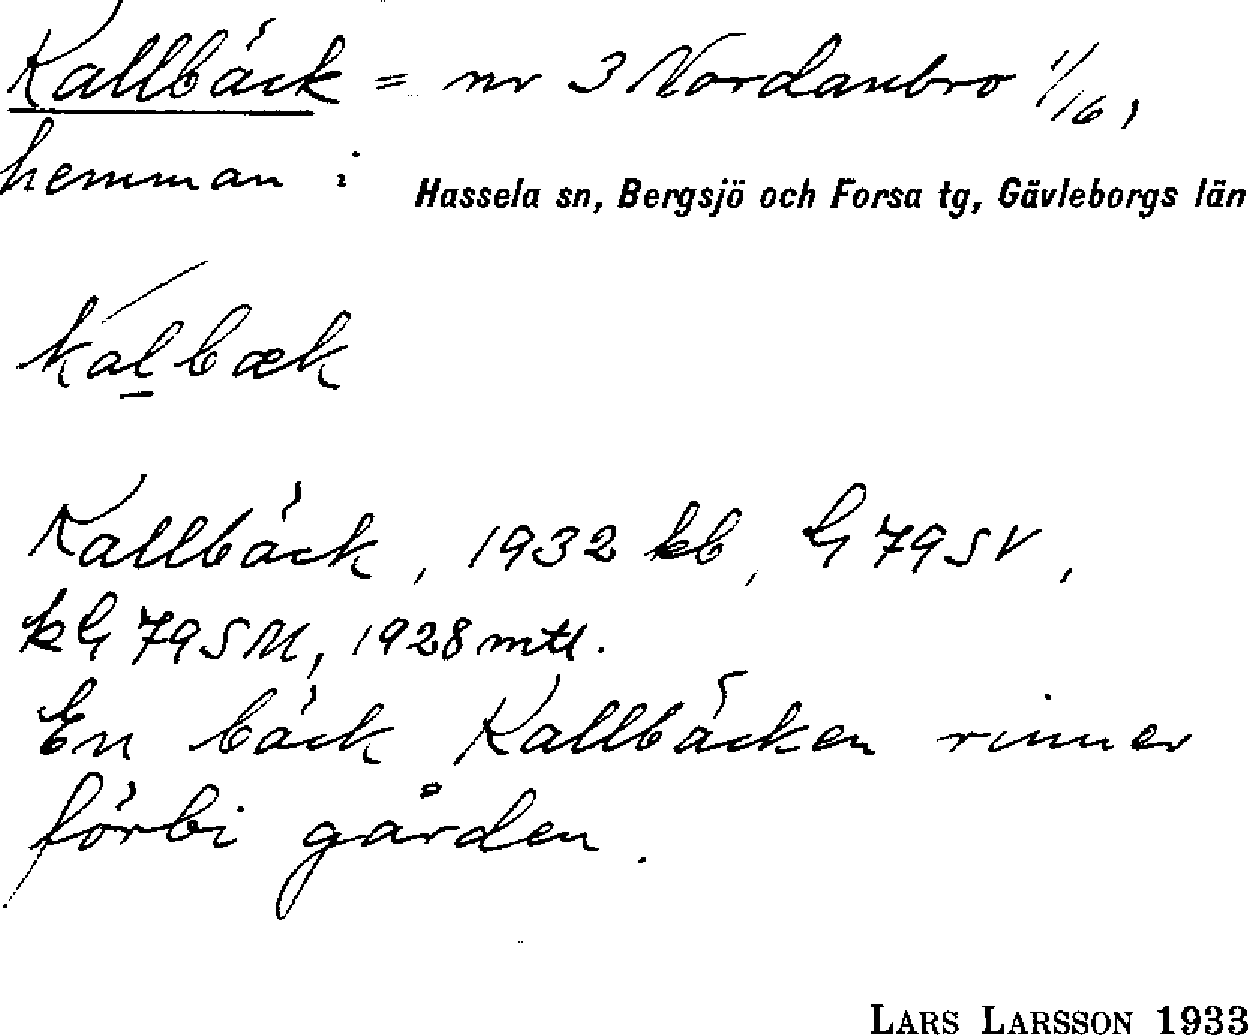 Kallbäck = nr 3 Nordanbro 1/16,
hemman i Hassela sn, Bergsjö och Forsa tg, Gävleborgs län
kálbæk
Kallbäck, 1932 kb, G 79 SV,
kG 79 SM, 1928 mtl.
En bäck Kallbäcken rinner
förbi gården.
LARS LARSSON 1933